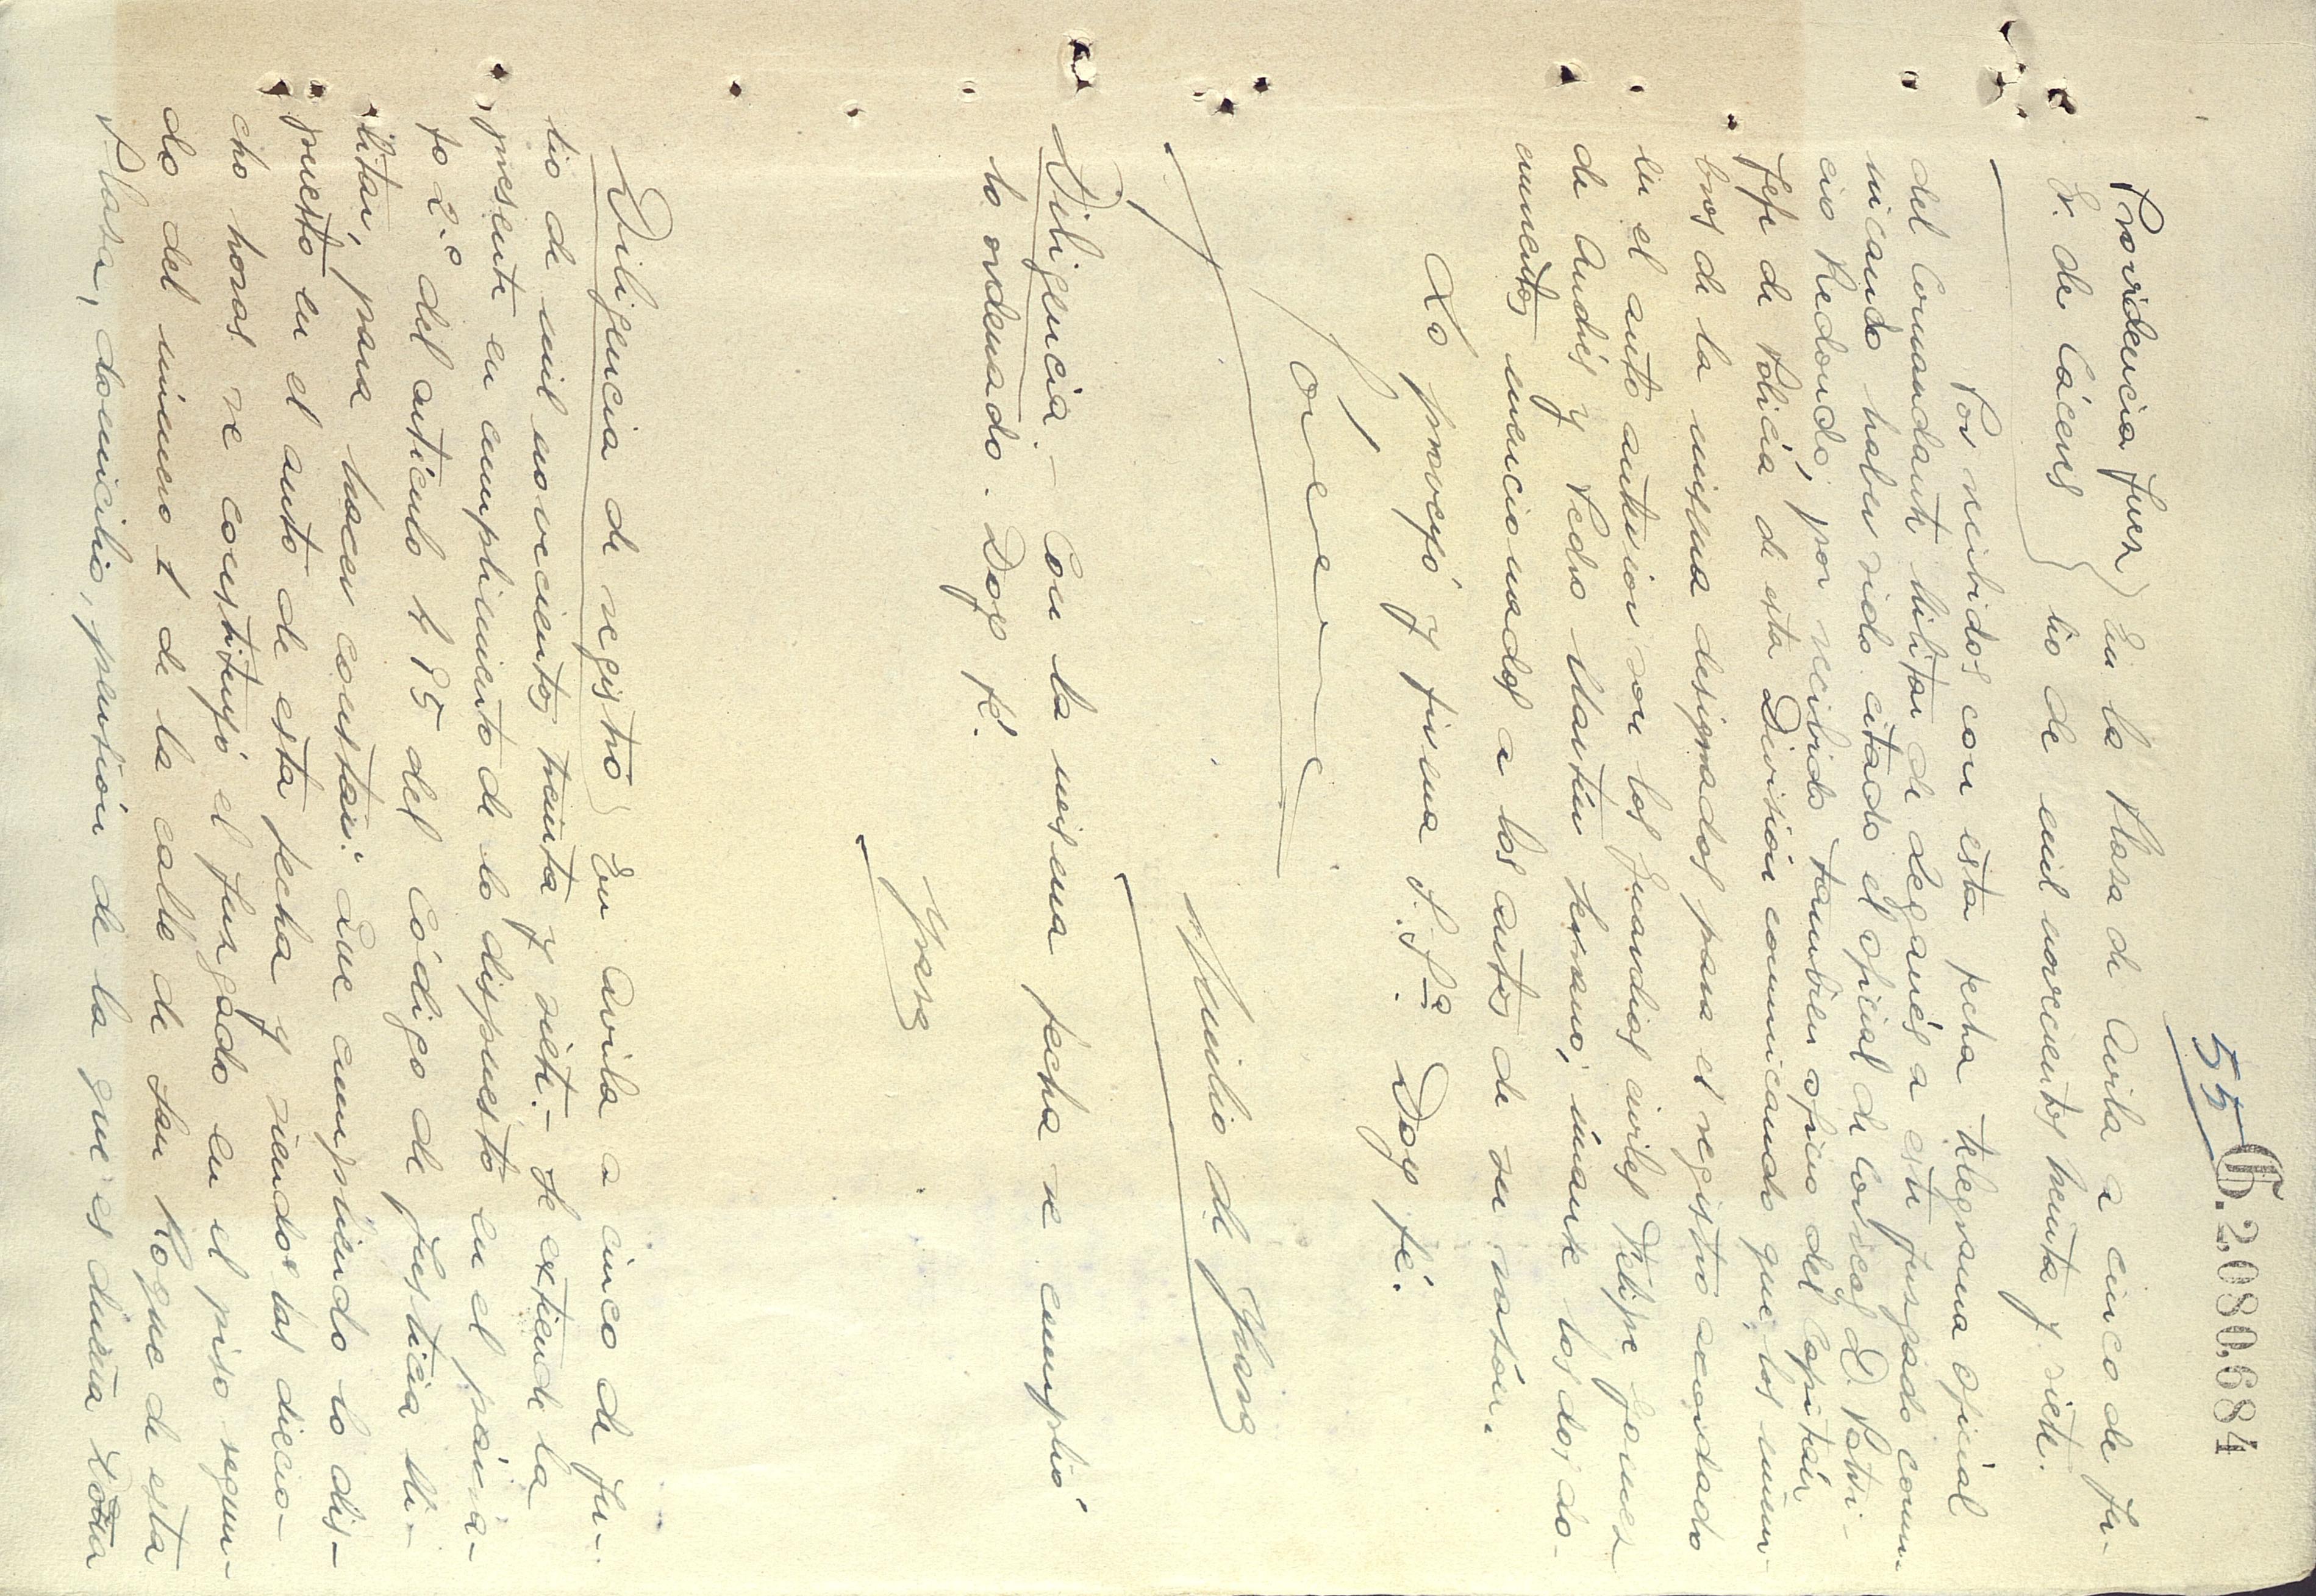 55
G.2,080,684
Providencia Juez } En la Plaza de Avila a cinco de Ju-
Sr. de Cáceres } lio de mil novecientos treinta y siete.
Por recibidos con esta fecha telegrama oficial
del Comandante Militar de Leganés a este Juzgado comu-
nicando haber sido citado el oficial de Correos D. Patri-
cio Redondo, por recibido tambien oficio del Capitán
Jefe de Policía de esta División comunicando que los miem-
bros de la misma designados para el registro acordado
en el auto anterior son los guardias civiles Felipe Gomez
de Andrés y Pedro Martín Serrano, únanse los dos do-
cumentos mencionados a los autos de su razón.
Lo proveyó y firma S. Sª. Doy fé.
Cáceres
Emilio de Juana
Diligencia.- Con la misma fecha se cumplió
lo ordenado. Doy fé.
Juana
Diligencia de registro } En Avila a cinco de Ju-
lio de mil novecientos treinta y siete.- Se extiende la
presente en cumplimiento de lo dispuesto en el párra-
fo 2.º del artículo 495 del Código de Justicia Mi-
litar, para hacer constar: Que cumpliendo lo dis-
puesto en el auto de esta fecha y siendo las diecio-
cho horas se constituyó el Juzgado en el piso segun-
do del número 1 de la calle de San Roque de esta
Plaza, domicilio, pensión de la que es dueña Doña